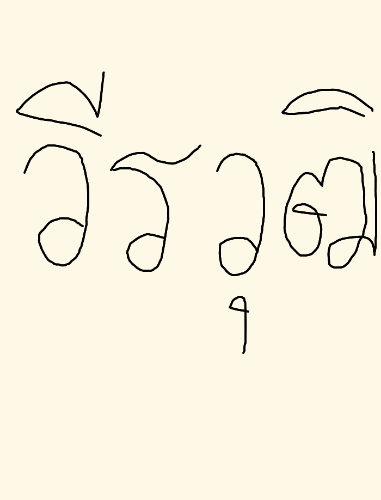 วีรวุฒิ